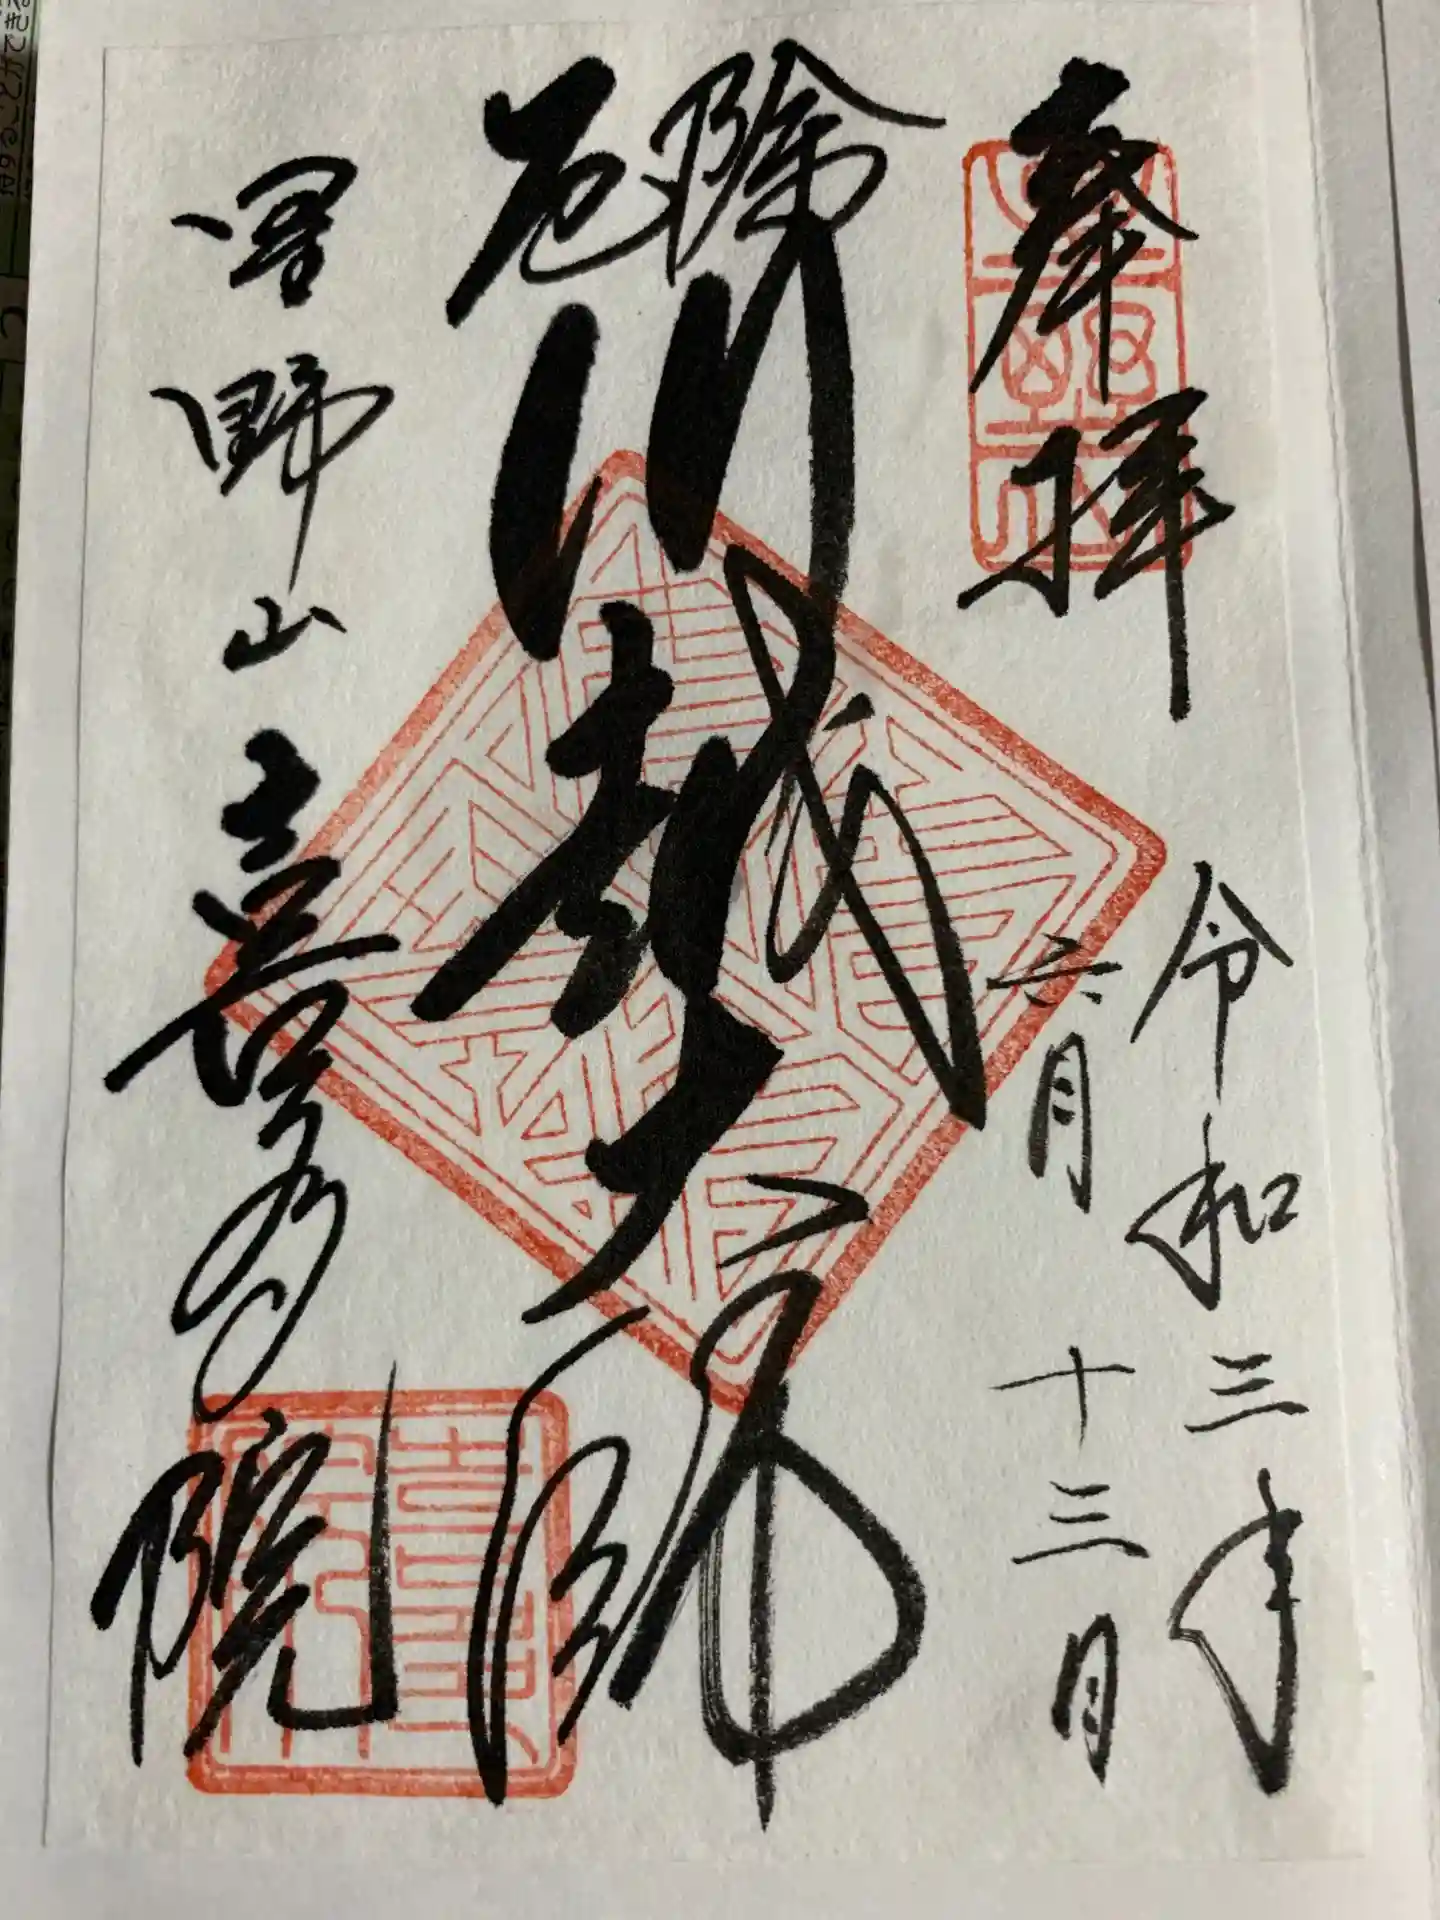 奉拝
令和三年
六月十三日
厄除
川越大師
星野山 喜多院